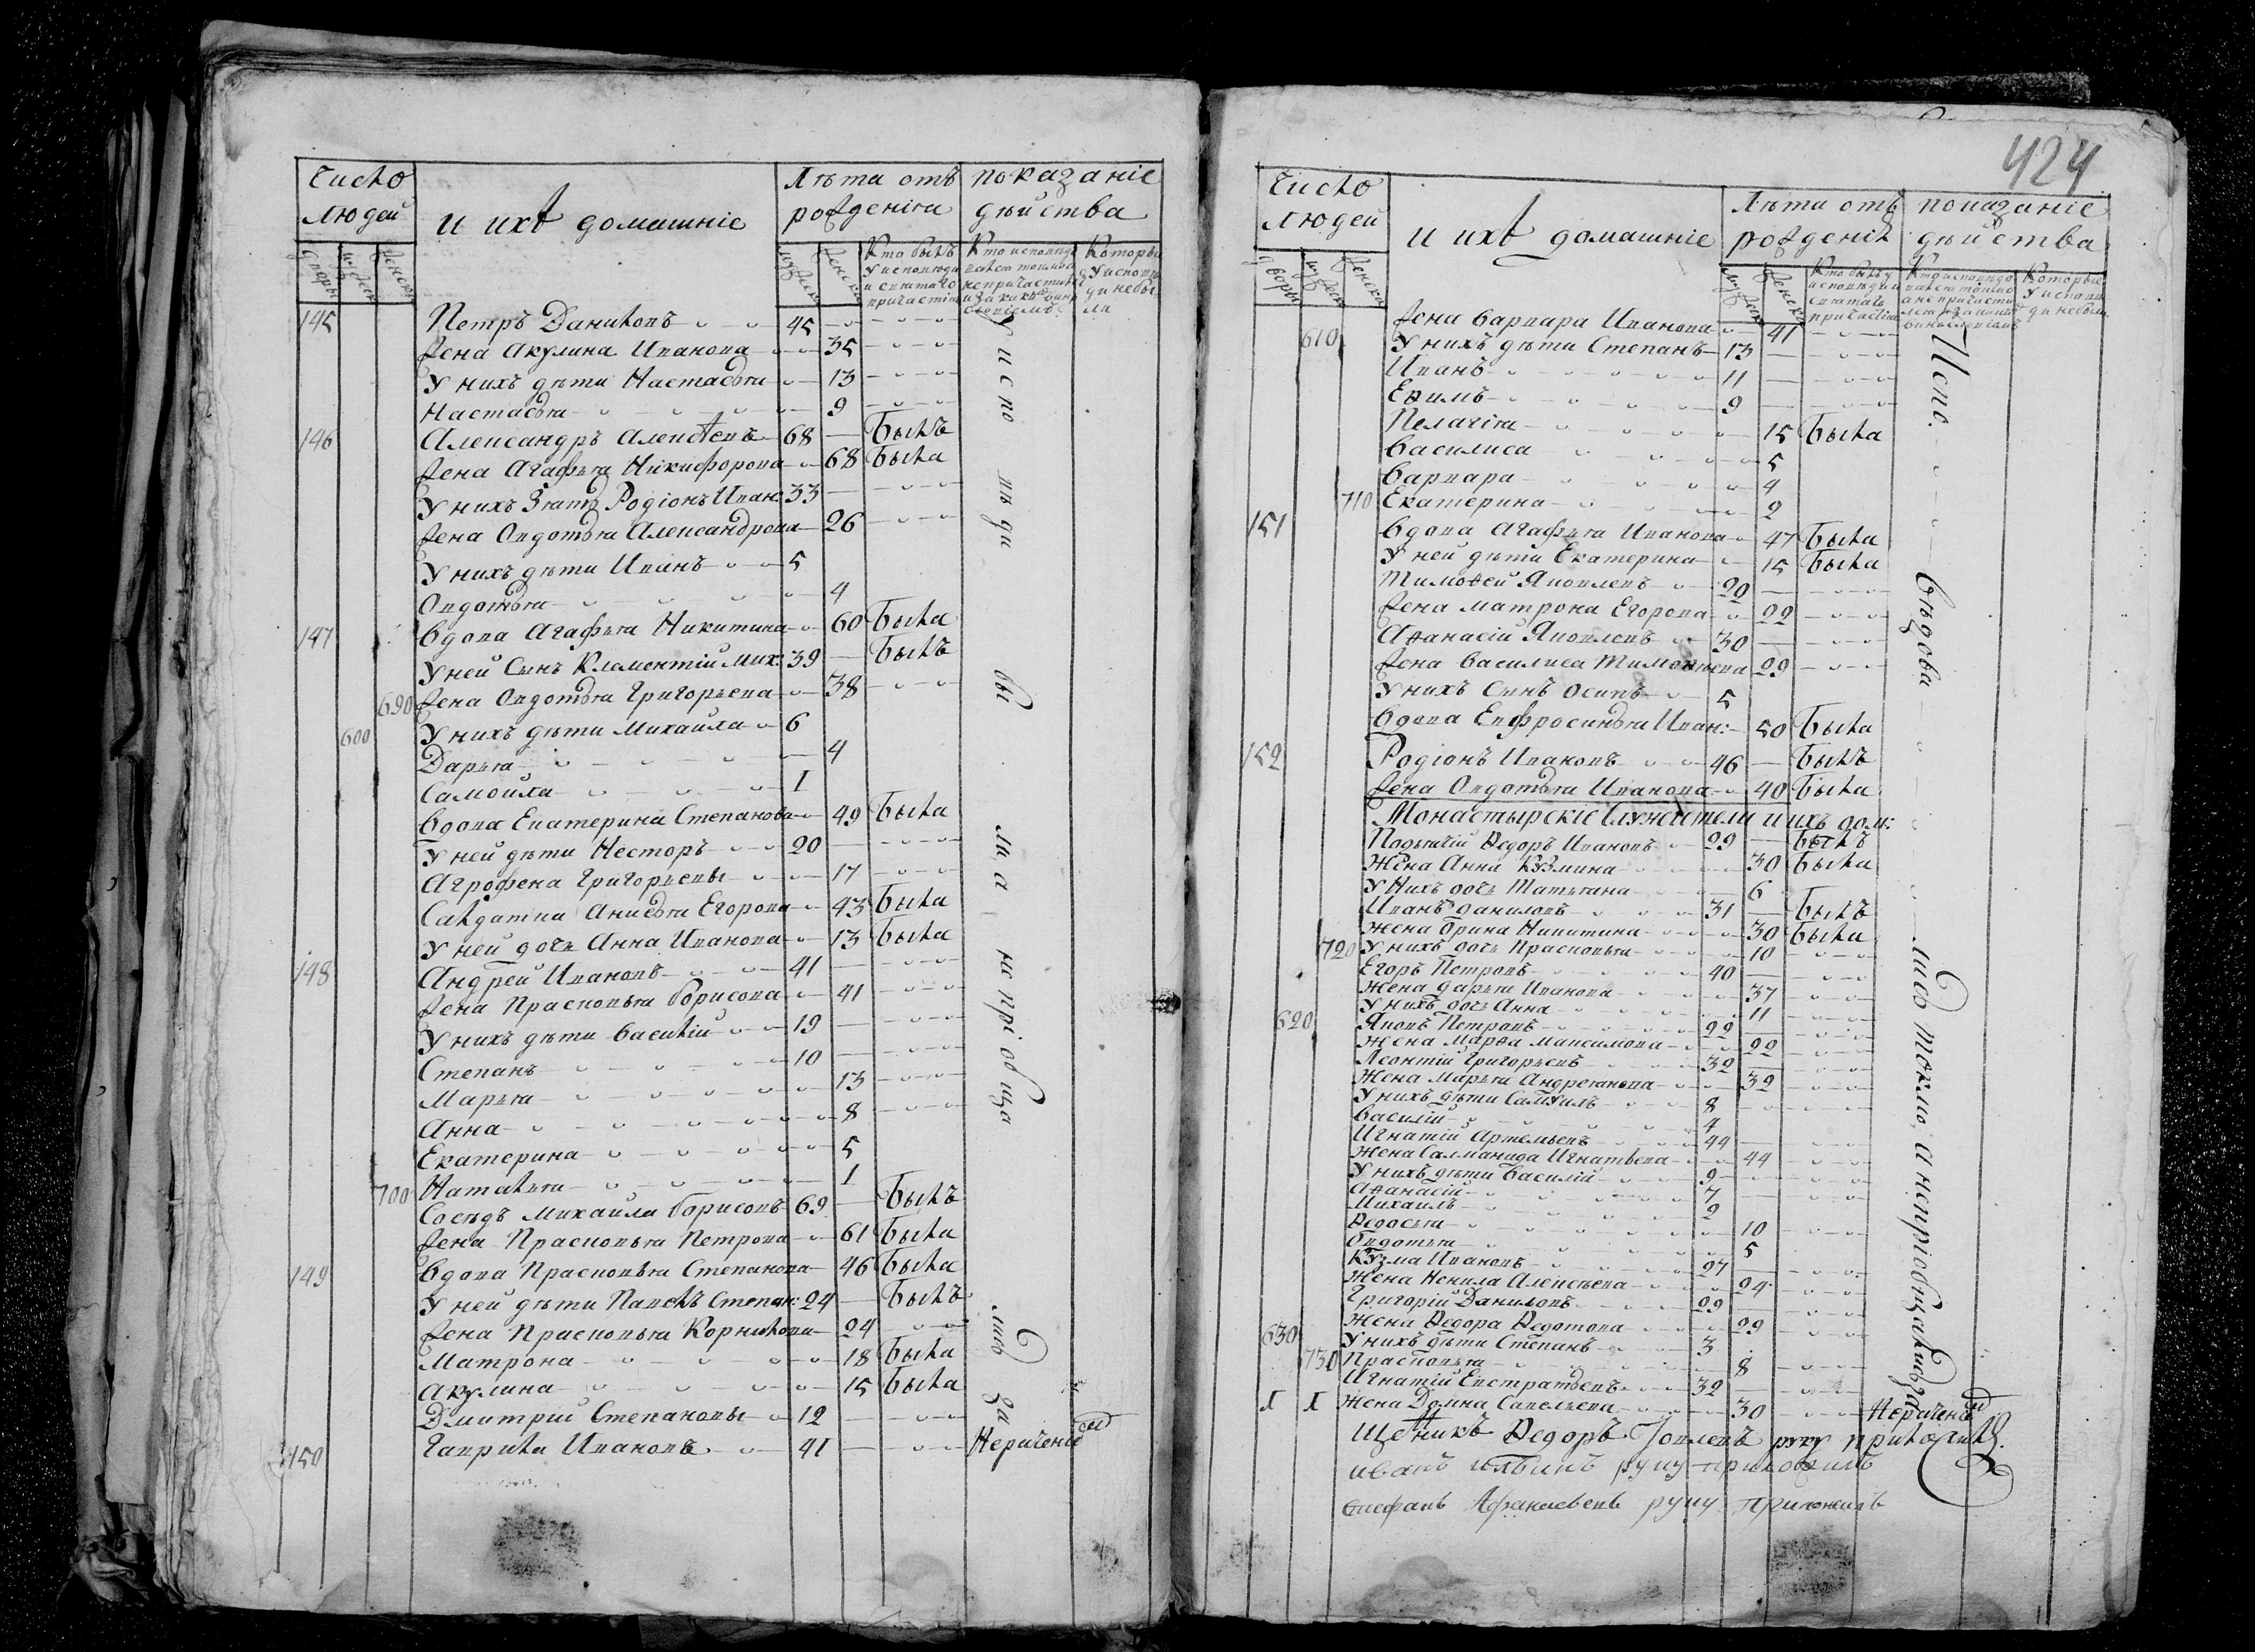 Число людей
и ихъ домашніе
Лѣта отъ рожденія
показаніе дѣйства
дворы
муж
женск
муж
женск
Кто былъ у исповѣди и святаго причастія
Которы у исповѣди небыли
145 Петръ Даниловъ 45
Жена Акулина Иванова 35
У нихъ дѣти Настасья 13
Настасья 9
146 Александръ Алексѣевъ 68 — былъ
Жена Агафья Никифорова 68 была
У нихъ Зять Родіонъ Иван: 33
Жена Овдотья Александрова 26
У нихъ дѣти Иванъ 5
Овдотья 4
147 Вдова Агафья Никитина 60 была
У ней Сынъ Климентій Мих: 39 — былъ
690 Жена Овдотья Григорьева 38
600 У нихъ дѣти Михайла 6
Дарья 4
Самойла 1
Вдова Екатерина Степанова 49 была
У ней дѣти Несторъ 20
Агрофена Григорьевы 17
Салдатка Анисья Егорова 43 была
У ней дочь Анна Иванова 13 была
148 Андрей Ивановъ 41
Жена Прасковья Борисова 41
У нихъ дѣти Василій 19
Степанъ 10
Марья 13
Анна 8
Екатерина 5
700 Наталья 1
Сосѣдъ Михаила Борисовъ 69 — былъ
Жена Прасковья Петрова 61 была
149 Вдова Прасковья Степанова 46 была
У ней дѣти Павелъ Степан: 24 — былъ
Жена Прасковья Корнилова 24
Матрона 18 была
Акулина 15 была
Дмитрий Степановы 12
150 Гаврила Ивановъ 41
У исповѣди была напріобща лись за Нераченіемъ
424
Число людей
и ихъ домашніе
Лѣта отъ рожденія
показаніе дѣйства
дворы
муж
женска
муж
женска
Кто былъ у исповѣди и святаго причастія
Которые у исповѣди небыли
Жена Варвара Иванова 41
610 У нихъ дѣти Степанъ 13
Иванъ 11
Ефимъ 9
Пелагія 15 была
Василиса 5
Варвара 4
710 Екатерина 2
151 Вдова Агафья Иванова 47 была
У ней дѣти Екатерина 15 была
Тимофей Яковлевъ 20
Жена Матрона Егорова 22
Афанасій Яковлевъ 30
Жена Василиса Тимофѣева 29
У нихъ Сынъ Осипъ 5
Вдова Евфросинья Иван: 50 была
152 Родіонъ Ивановъ 46 — былъ
Жена Овдотья Иванова 40 была
Монастырскіе Служители и ихъ дом:
Подьячій Ѳедоръ Ивановъ 29 — былъ
Жена Анна Кузмина 30 была
У Нихъ дочь Татьяна 6
Иванъ Даниловъ 31 — былъ
Жена Орина Никитина 30 была
720 У нихъ дочь Прасковья 10
Егоръ Петровъ 40
Жена Дарья Иванова 37
У нихъ дочь Анна 11
620 Яковъ Петровъ 22
Жена Марѳа Максимова 22
Леонтій Григорьевъ 32
Жена Марья Андреянова 32
У нихъ дѣти Самуилъ 8
Василій 4
Игнатій Артемьевъ 44
Жена Салманида Игнатьева 44
У нихъ дѣти Василій 9
Афанасій 7
Михаилъ 2
Ѳедосья 10
Овдотья 5
Кузма Ивановъ 27
Жена Ненила Алексѣева 24
Григорій Даниловъ 29
Жена Ѳедора Ѳедотова 29
630 У нихъ дѣти Степанъ 3
730 Прасковья 8
Игнатій Евстратьевъ 32
Жена Домна Савельева 30
Испо вѣдова лись токмо, а непріобщались за Нераченіемъ
Щетчикъ Ѳедоръ Іовлевъ руку приложилъ.
иванъ ильинъ руку приложилъ
стефанъ Афанасьевъ руку приложилъ